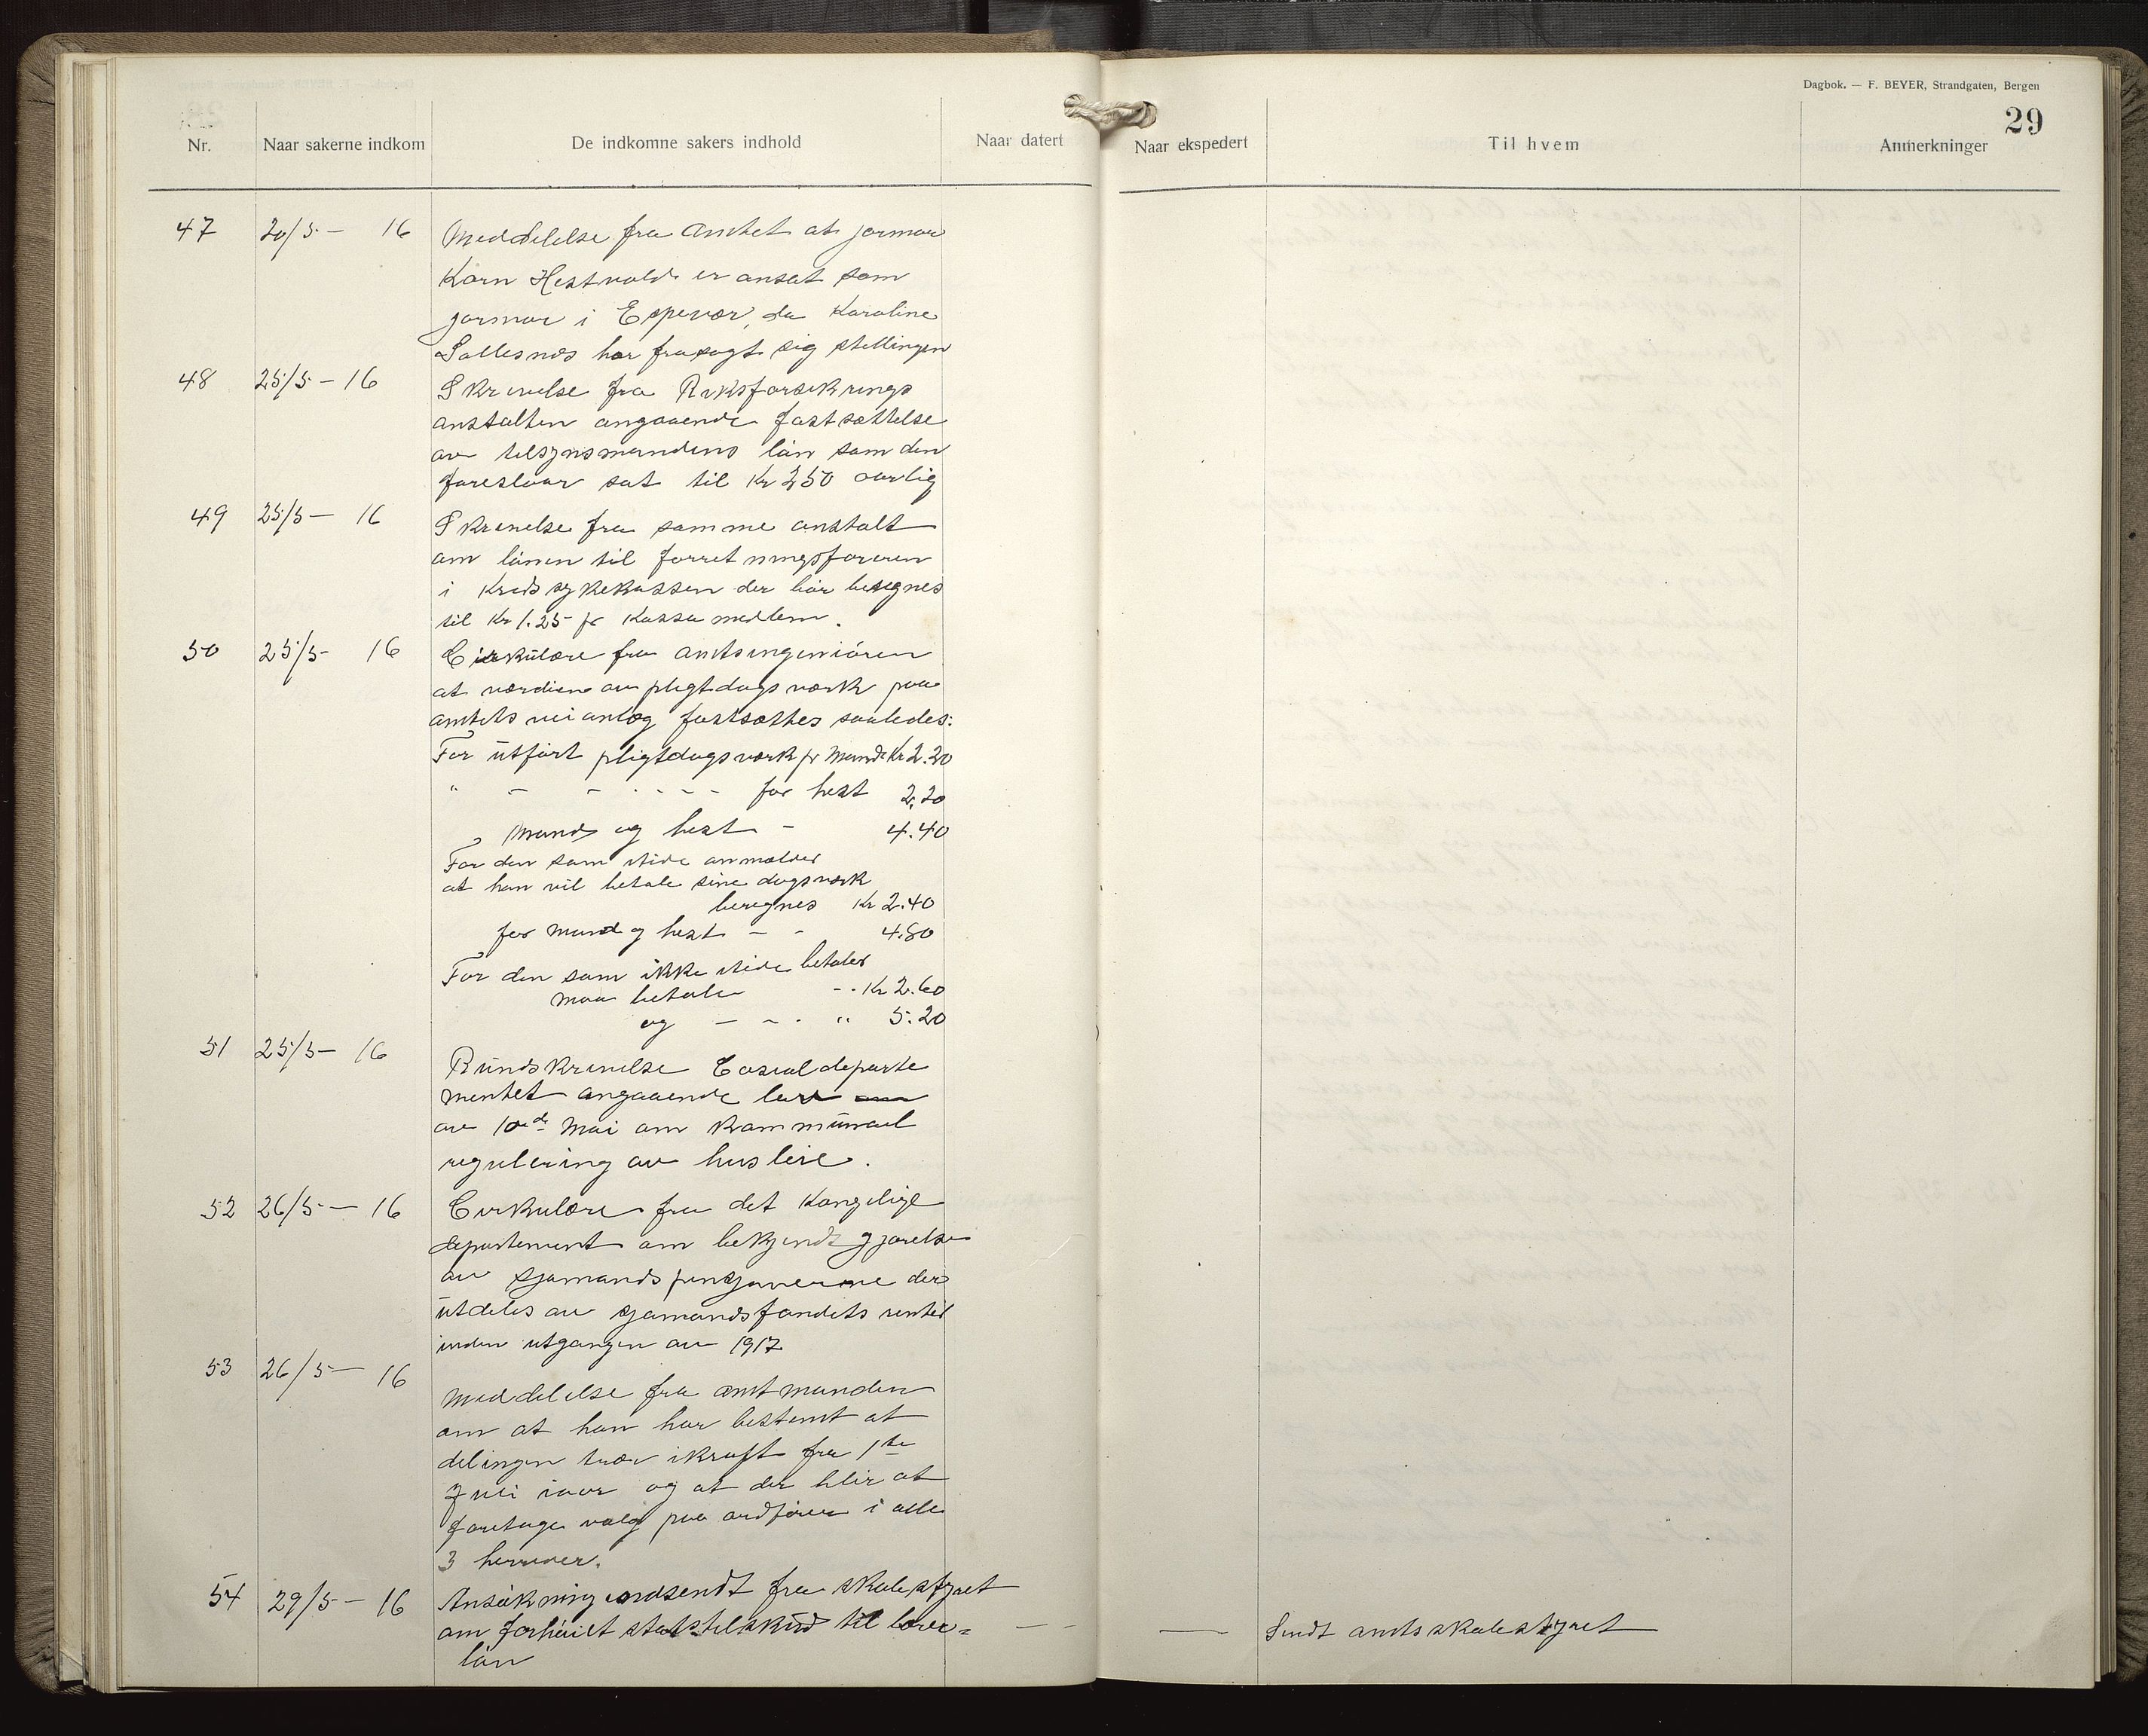 Dagbok. — F. BEYER, Strandgaten, Bergen
29
Nr. Naar sakerne indkom De indkomne sakers indhold Naar datert Naar ekspedert Til hvem Anmerkninger
47 20/5 – 16 Meddelelse fra Amtet at jormor
Karn Hestvold er ansat som
jormor i Espevær, da Karoline
Sallesnæs har frasagt sig stellingen
48 25/5 – 16 Skrivelse fra Riksforsikrings
anstalten angaaende fastsættelse
av tilsynsmandens lön som den
foreslaar sat til Kr 250 aarlig
49 25/5 – 16 Skrivelse fra samme anstalt
om lönen til forretningsföreren
i Kredssykekassen der bör beregnes
til Kr 1.25 pr Kassemedlem.
50 25/5 16 Cirkulære fra amtsingeniören
at værdien av pligtdagsværk paa
amtets veianlæg fastsættes saaledes:
For utfört pligtdagsværk pr Mand Kr 2.20
" – – - - - - for hest 2.20
" Mand og hest – 4.40
For den som itide anmelder
at han vil betale sine dagsværk
beregnes Kr 2.40
for mand og hest – - 4.80
For den som ikke itide betaler
maa betale - - Kr 2.60
og – - - " 5.20
51 25/5 – 16 Rundskrivelse Cosialdeparte
mentet angaaende lov om
av 10de Mai om kommunal
regulering av husleie.
52 26/5 – 16 Cirkulære fra det Kongelige
departement om bekjendtgjörelse
av sjømandspensjonerne der
utdeles av sjømandsfondets renter
inden utgangen av 1917
53 26/5 – 16 Meddelelse fra amtmanden
om at han har bestemt at
delingen træ ikraft fra 1ste
Juli iaar og at der blir at
foretage valg paa ordförer i alle
3 herreder.
54 29/5 – 16 Ansökning indsendt fra skolestyret
om forhöiet statstilskud til lærer= — - — Sendt amtsskolestyret
lön